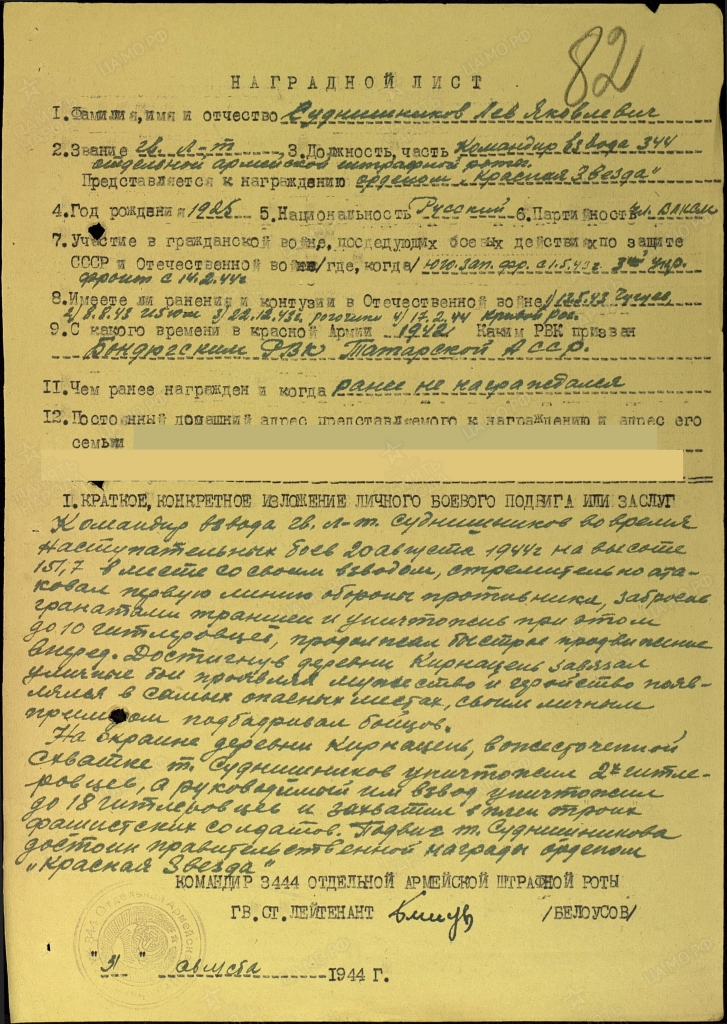 82
НАГРАДНОЙ ЛИСТ
I. Фамилия, имя и отчество Суднишников Лев Яковлевич
2. Звание гв. л-т 3. Должность, часть Командир взвода 344
отдельной армейской штрафной роты.
Представляется к награждению орденом „Красная Звезда"
4. Год рождения 1925 5. Национальность Русский 6. Партийность чл. ВЛКСМ
7. Участие в гражданской войне, последующих боевых действиях по защите
СССР и Отечественной войне /где, когда/ Юго. Зап. фр. с 1.5.43г 3й Укр.
фронт с 14.2.44г
8. Имеете ли ранения и контузии в Отечественной войне 1) 12.5.43 Чугуев
2) 8.8.43 Изюм 3) 22.12.43г. 4) 17.2.44 Кривой Рог.
9. С какого времени в красной Армии 1942 Каким РВК призван
Бондюгским РВК Татарской АССР.
II. Чем ранее награжден и когда ранее не награждался
I2. Постоянный домашний адрес представляемого к награждению и адрес его
семьи
I. КРАТКОЕ, КОНКРЕТНОЕ ИЗЛОЖЕНИЕ ЛИЧНОГО БОЕВОГО ПОДВИГА ИЛИ ЗАСЛУГ
Командир взвода гв. л-т. Суднишников во время
наступательных боев 20 августа 1944г на высоте
151,7 вместе со своим взводом, стремительно ата-
ковал первую линию обороны противника, забросав
гранатами траншеи и уничтожив при этом
до 10 гитлеровцев, продолжал быстрое продвижение
вперед. Достигнув деревни Кирнацень завязал
уличные бои проявляя мужество и геройство появ-
лялся в самых опасных местах, своим личным
примером подбадривал бойцов.
На окраине деревни Кирнацень, в ожесточенной
схватке т. Суднишников уничтожил 2х гитле-
ровцев, а руководимый им взвод уничтожил
до 18 гитлеровцев и захватил в плен троих
фашистских солдатов. Подвиг т. Суднишникова
достоин правительственной награды орденом
„Красная Звезда"
КОМАНДИР 3444 ОТДЕЛЬНОЙ АРМЕЙСКОЙ ШТРАФНОЙ РОТЫ
ГВ. СТ. ЛЕЙТЕНАНТ /БЕЛОУСОВ/
"31" августа 1944 Г.